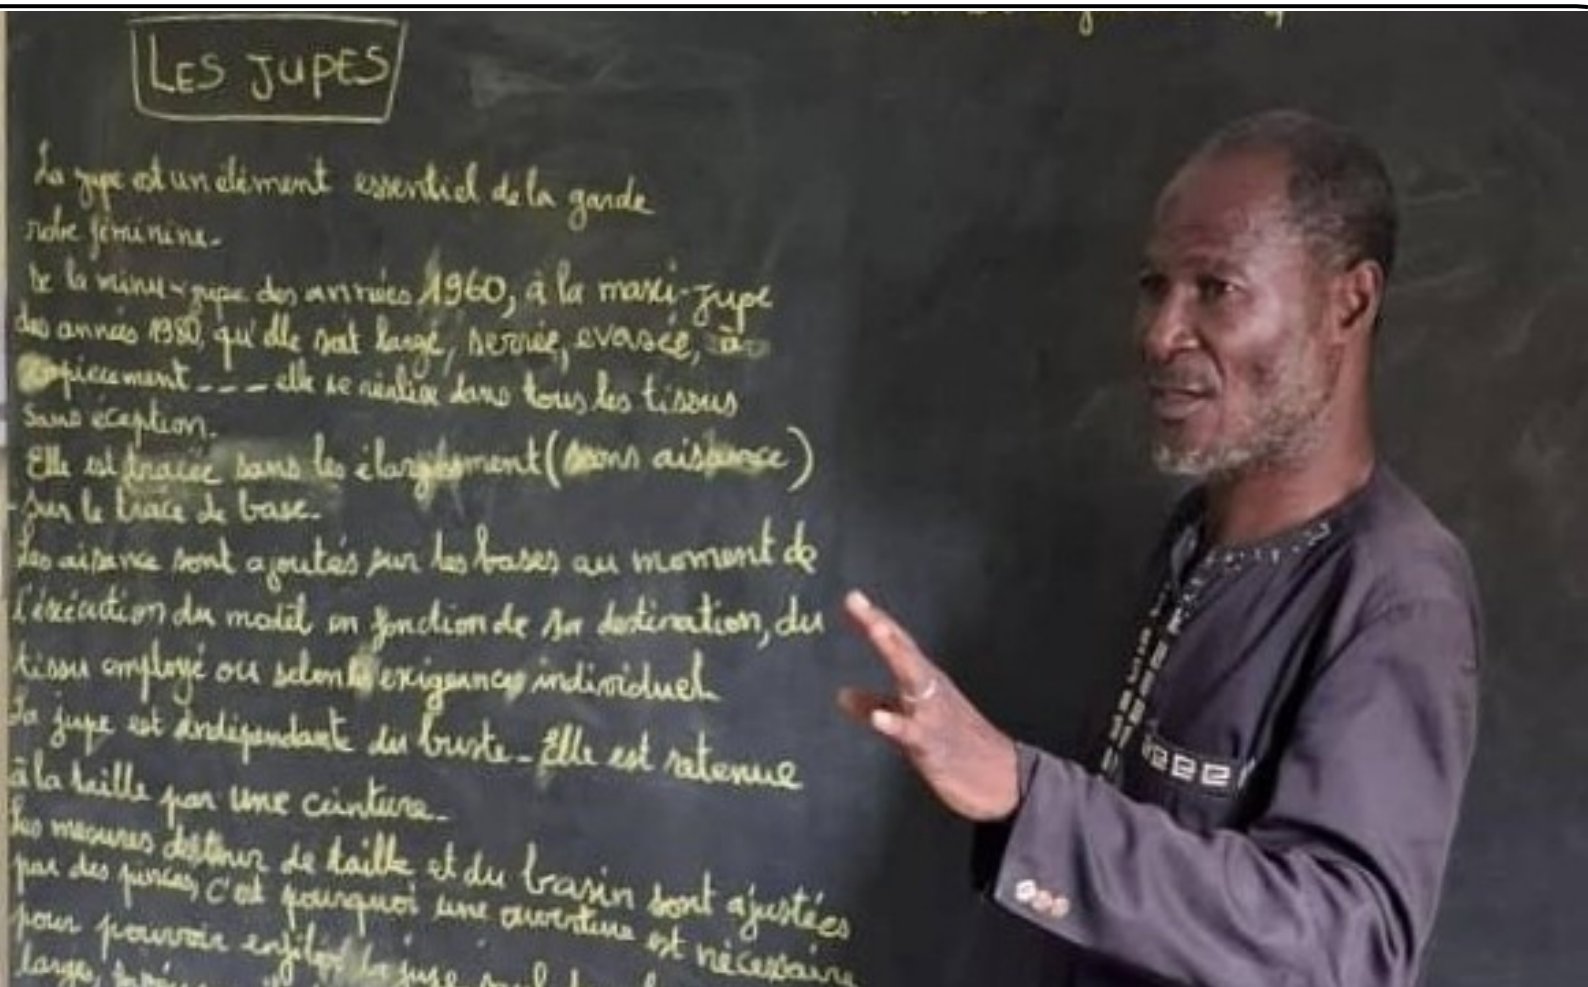 LES JUPES
La jupe est un élément essentiel de la garde
robe féminine.
De la minu-jupe des années 1960, à la maxi-jupe
des années 1980, qu'elle soit large, serrée, evasée, à
empiecement --- elle se réalise dans tous les tissus
sans éception.
Elle est tracée sans les élargissement (sans aisance)
sur le tracé de base.
Les aisance sont ajoutés sur les bases au moment de
l'éxécution du modèl en fonction de sa destination, du
tissu employé ou selon exigence individuel
La jupe est indépendante du buste - Elle est retenue
à la taille par une ceinture.
Les mesures de taille et du bassin sont ajustées
par des pinces, c'est pourquoi une ouverture est nécessaire
pour pouvoir enfiler la jupe
large,